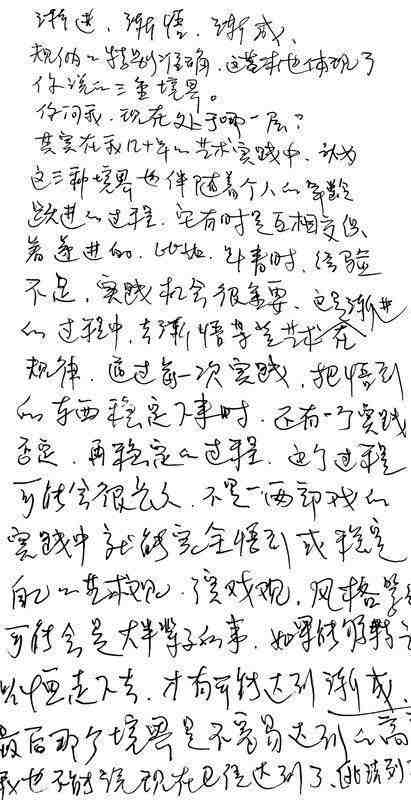 渐进、渐悟、渐成、
规纳的特别准确、这基本也体现了
你说的三重境界。
你问我，现在处于哪一层？
其实在我几十年的艺术实践中，认为
这三种境界也伴随着个人的年龄
跃进的过程，它有时是互相交织
着递进的，比如，年青时，经验
不足，实践机会很重要，这是渐进
的过程中，去渐悟某些艺术
规律，通过每一次实践，把悟到
的东西稳定下来时，还有一个实践
否定，再稳定的过程，这个过程
可能会很长久，不是一两部戏的
实践中就能完全悟到或稳定
自己的艺术观，演戏观，风格等
可能会是大半辈子的事，如果能够
恒走下去，才有可能达到渐成，
最后那个境界是不容易达到的高
我也不能说现在已经达到了